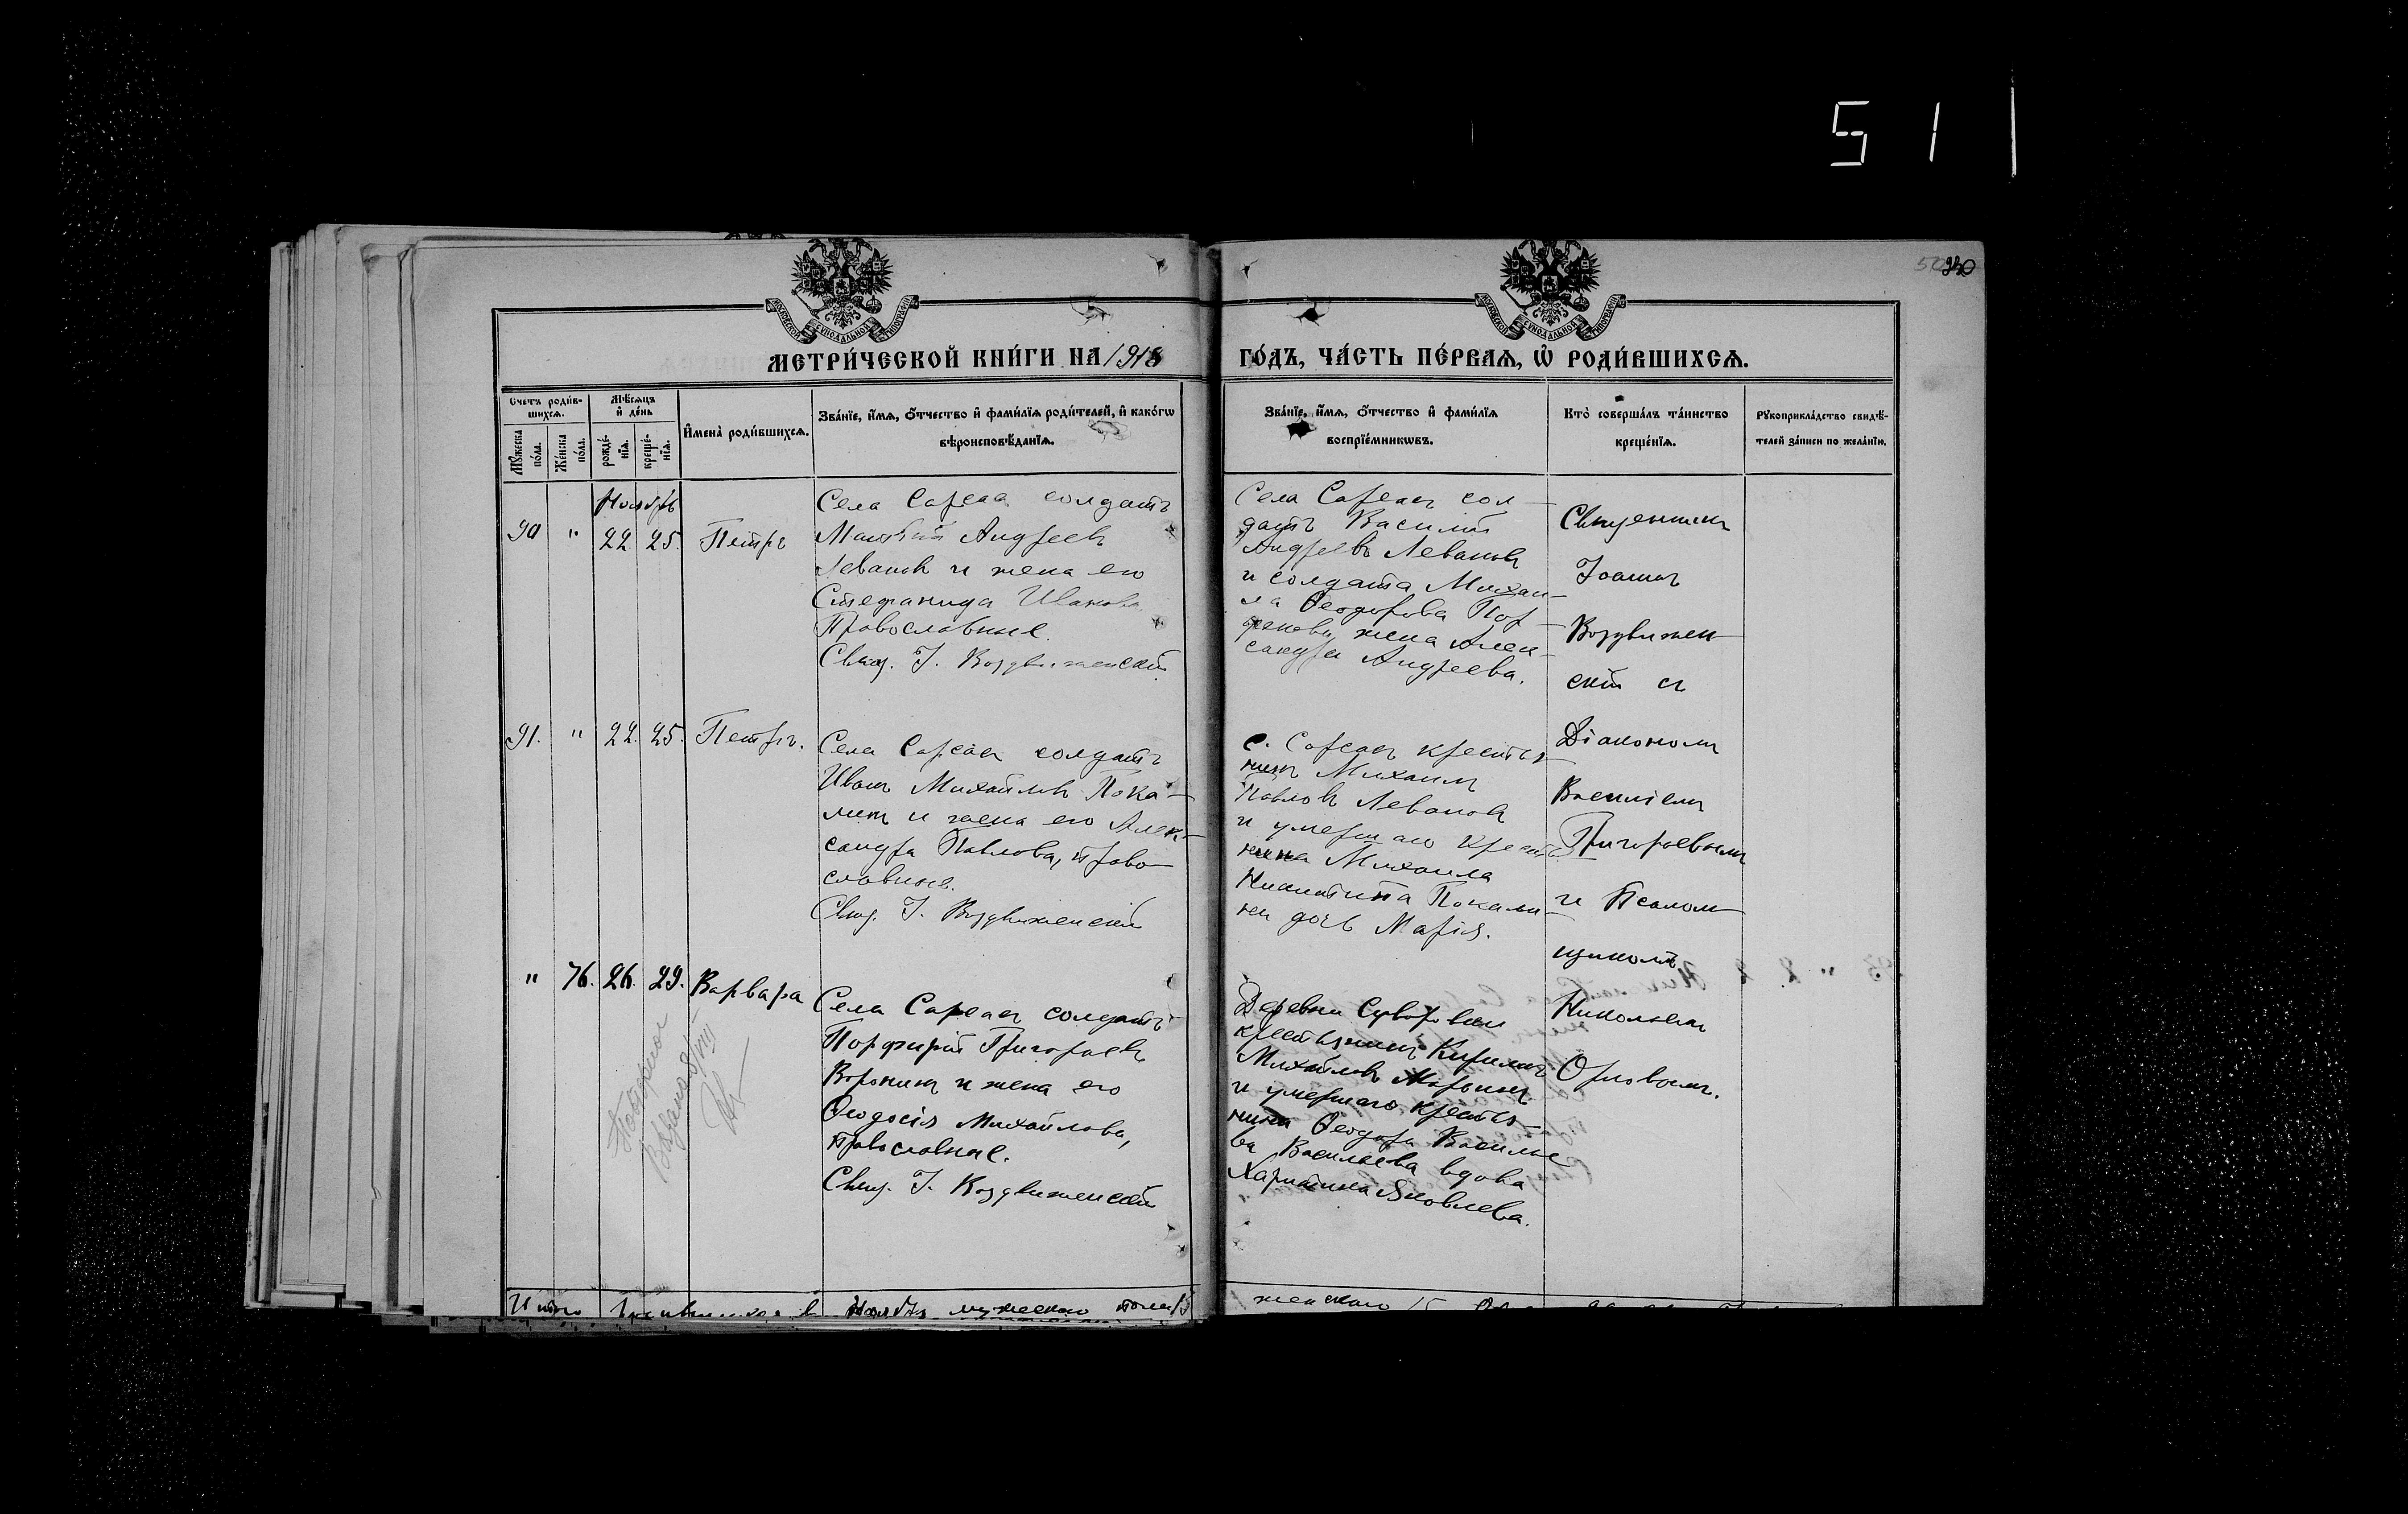 511
50 230
МОСКОВСКОЙ СѴНОДАЛЬНОЙ ТИПОГРАФІИ
МОСКОВСКОЙ СѴНОДАЛЬНОЙ ТИПОГРАФІИ
МЕТРИ́ЧЕСКОЙ КНИ́ГИ НА 1918 ГО́ДЪ, ЧА́СТЬ ПЕ́РВАѦ, Ѽ РОДИ́ВШИХСѦ.
Счетъ роди́в-
шихсѧ.
Му́жеска по́ла.
Же́нска по́ла.
Мѣ́сѧцъ
и҆ де́нь
рожде́-
нїѧ.
креще́-
нїѧ.
И҆мена̀ роди́вшихсѧ.
Зва́нїе, и҆́мѧ, ѻ҆́тчество и҆ фами́лїѧ роди́телей, и҆ како́гѡ
вѣроисповѣ́данїѧ.
Зва́нїе, и҆́мѧ, ѻ҆́тчество и҆ фами́лїѧ
воспрїе́мникѡвъ.
Кто̀ соверша́лъ та́инство
креще́нїѧ.
Рꙋкоприкла́дство свидѣ́-
телей за́писи по жела́нїю.
Ноябрь
90 " 22. 25. Петръ
Села Сарсаз солдатъ
Матвѣй Андреевъ
Левановъ и жена его
Стефанида Иванова
Православные.
Свящ. І. Воздвиженскій
Села Сарсаз сол-
датъ Василій
Андреевъ Левановъ
и солдата Михаи-
ла Ѳеодорова Пор-
жена Алек-
сандра Андреева.
Священникъ
Іоаннъ
Воздвижен-
скій съ
Діакономъ
Василіемъ
Григорьевымъ
и Псалом-
щикомъ
Николаемъ
Орловымъ.
91. " 22. 25. Петръ.
Села Сарсаз солдатъ
Иванъ Михайловъ Пока-
линъ и жена его Алек-
сандра Павлова, право-
славные.
Свящ. І. Воздвиженскій
с. Сарсаз крестья-
нинъ Михаилъ
Павловъ Левановъ
и умершаго крестья-
нина Михаила
Никитина Покали-
на дочь Марія.
" 76. 26. 29. Варвара
Села Сарсаз солдатъ
Порфирій Григорьевъ
Воронинъ и жена его
Ѳеодосія Михайлова,
православные.
Свящ. І. Воздвиженскій
Деревни
крестьянинъ Кирилъ
Михайловъ Марьинъ
и умершаго крестья-
нина Ѳеодора Василье-
ва Васильева вдова
Харитина Яковлева.
Итого родившихся въ Ноябрѣ мужескаго пола 15
женскаго 15